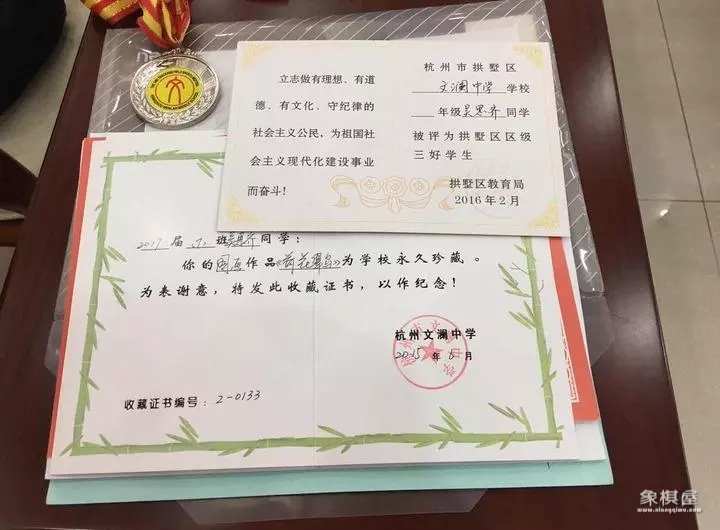 立志做有理想、有道
德、有文化、守纪律的
社会主义公民，为祖国社
会主义现代化建设事业
而奋斗！
杭州市拱墅区
文澜中学 学校
年级吴思齐同学
被评为拱墅区区级
三好学生
拱墅区教育局
2016年2月
2017届 班吴思齐同学：
你的国画作品《荷花翠鸟》为学校永久珍藏。
为表谢意，特发此收藏证书，以作纪念！
杭州文澜中学
2015年6月
收藏证书编号：2-0133
象棋屋
www.xiangqiwu.com